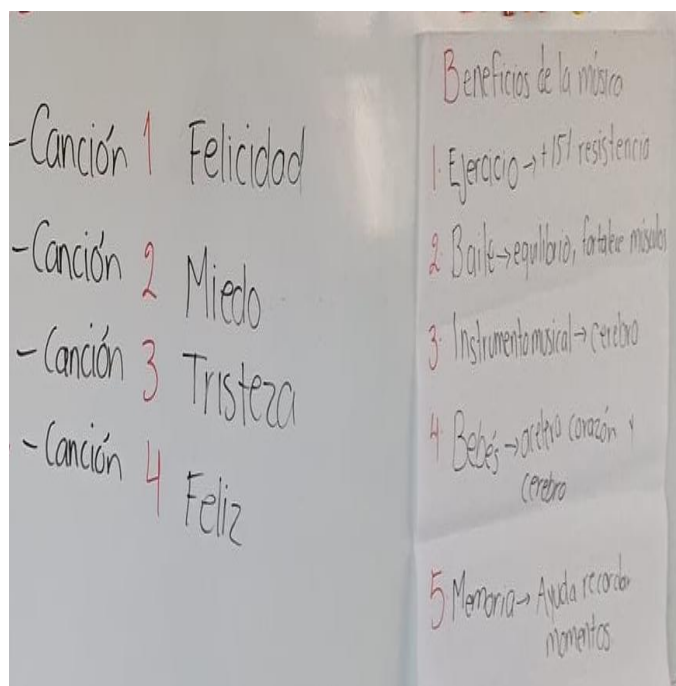 -Canción 1 Felicidad
-Canción 2 Miedo
-Canción 3 Tristeza
-Canción 4 Feliz
Beneficios de la música
1. Ejercicio→+15% resistencia
2. Baile→equilibrio, fortalece músculos
3. Instrumento musical→cerebro
4. Bebés→acelera corazón y
cerebro
5. Memoria→Ayuda recordar
momentos